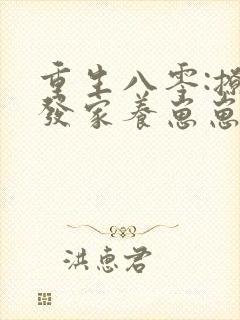 重生八零:
發家養崽崽
洪惠君